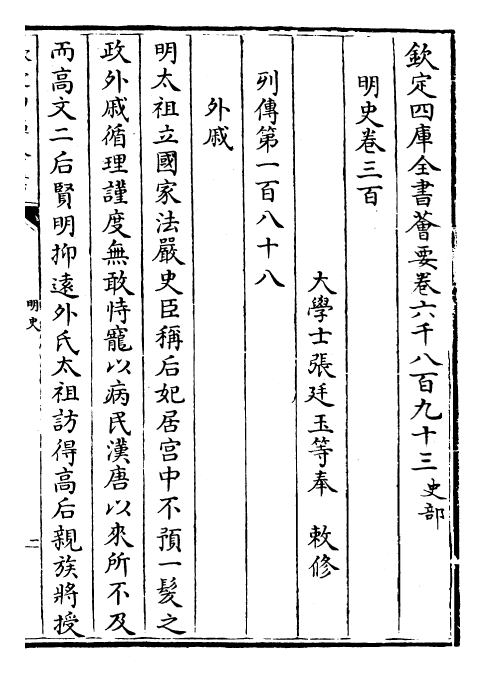 欽定四庫全書薈要卷六千八百九十三史部
明史卷三百
大學士張廷玉等奉　敕修
列傳第一百八十八
外戚
明太祖立國家法嚴史臣稱后妃居宮中不預一髮之
政外戚循理謹度無敢恃寵以病民漢唐以來所不及
而高文二后賢明抑遠外氏太祖訪得高后親族將授
明史